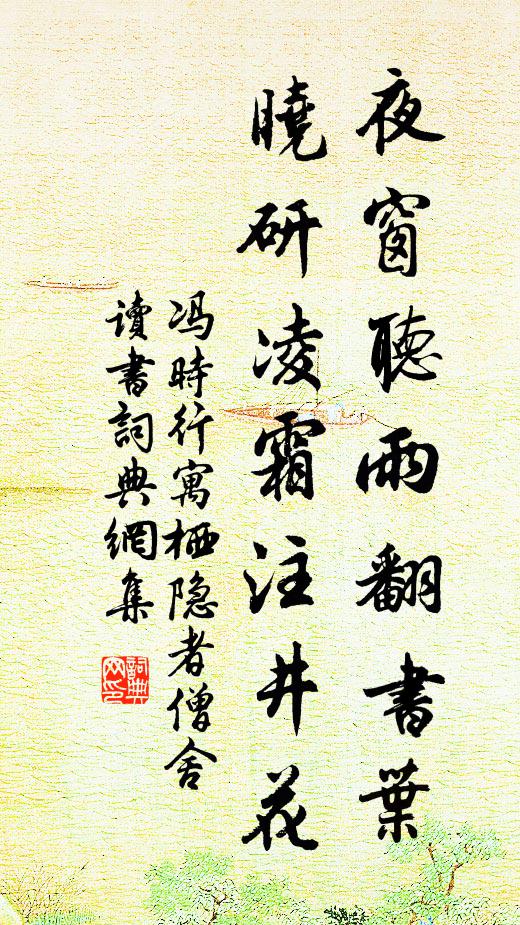 夜窗聽雨翻書葉
曉研凌霜注井花
冯時行寓栖隐者僧舍
讀書詞典網集
詞典网印